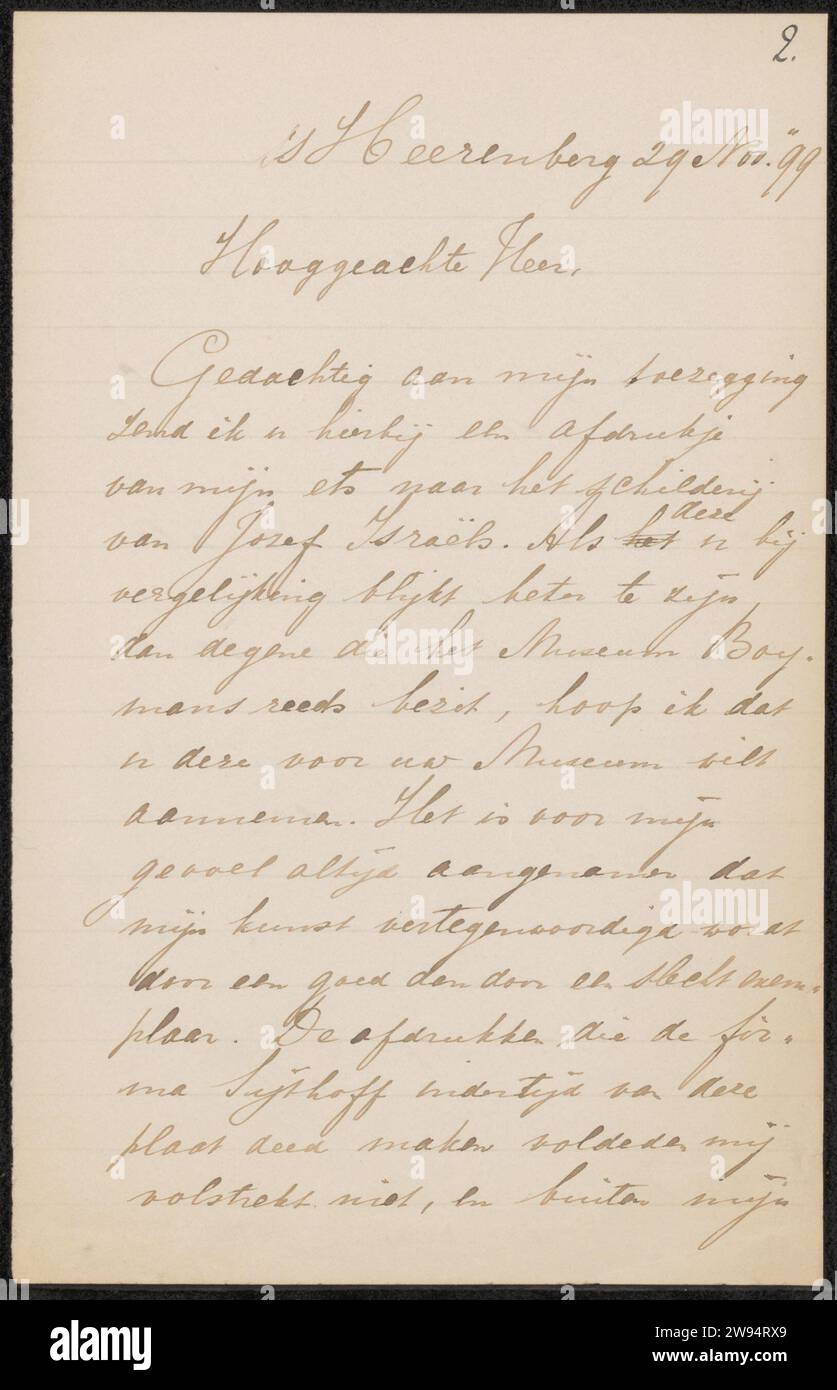 2.
's Heerenberg 29 Nov. "99
Hooggeachte Heer,
Gedachtig aan mijn toezegging
zend ik u hierbij een afdrukje
van mijn ets naar het schilderij
van Jozef Israëls. Als het deze u bij
vergelijking blijkt beter te zijn,
dan degene die het Museum Boy-
mans reeds bezit, hoop ik dat
u deze voor uw Museum wilt
aannemen. Het is voor mijn
gevoel altijd aangenamer dat
mijn kunst vertegenwoordigd wordt
door een goed dan door een slecht exem-
plaar. De afdrukken die de fir-
ma Sijthoff indertijd van deze
plaat deed maken voldeden mij
volstrekt niet, en buiten mijn
alamy
Image ID: 2W94RX9
www.alamy.com